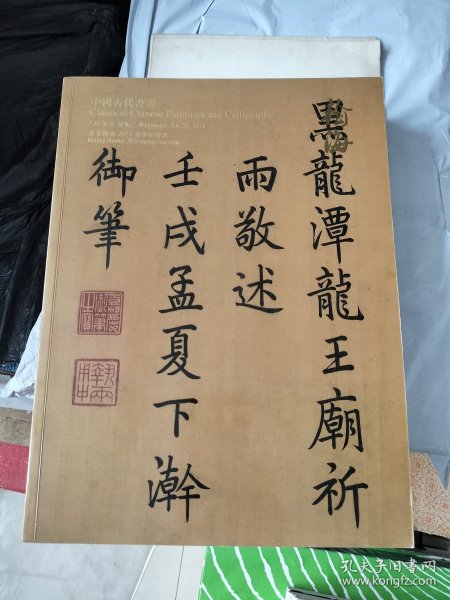 中國古代書畫
Classical Chinese Paintings and Calligraphy
北京翰海2023春季拍賣會
Beijing Hanhai 2023 Spring Auctions
翰海
黑龍潭龍王廟祈
雨敬述
壬戌孟夏下澣
御筆
孔夫子旧书网
www.kongfz.com